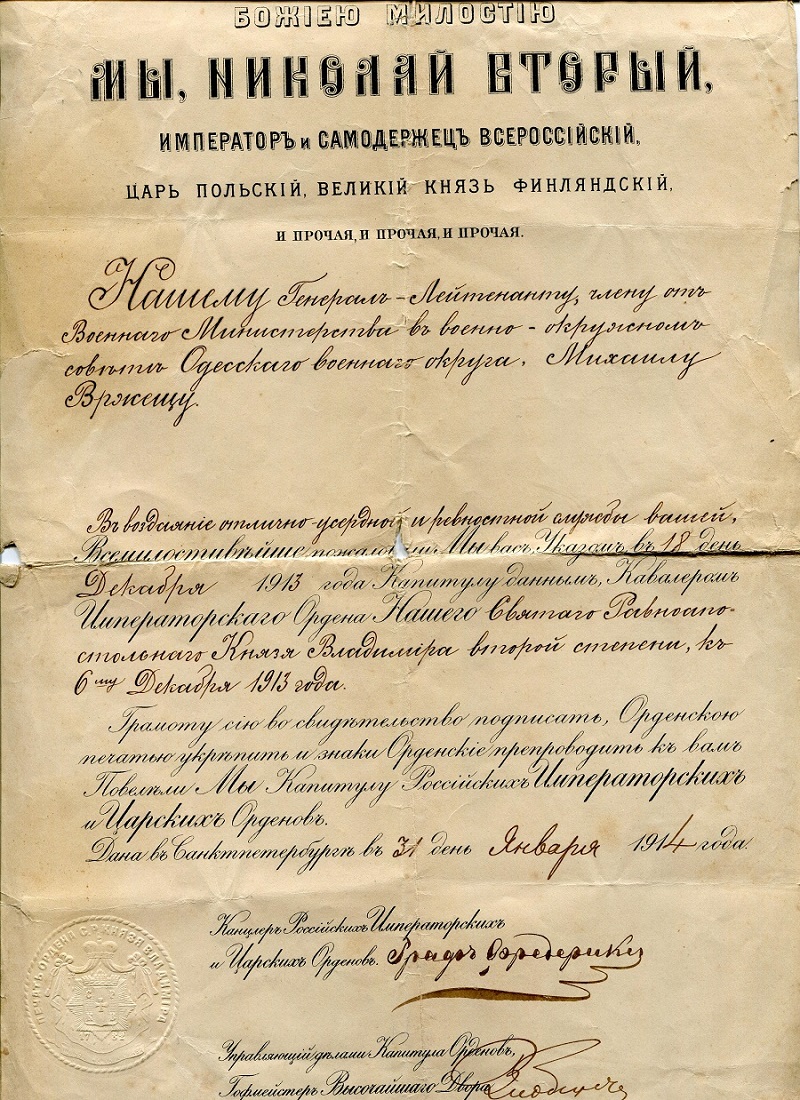 БОЖІЕЮ МИЛОСТІЮ
МЫ, НИКОЛАЙ ВТОРЫЙ,
ИМПЕРАТОРЪ и САМОДЕРЖЕЦЪ ВСЕРОССІЙСКІЙ,
ЦАРЬ ПОЛЬСКІЙ, ВЕЛИКІЙ КНЯЗЬ ФИНЛЯНДСКІЙ,
И ПРОЧАЯ, И ПРОЧАЯ, И ПРОЧАЯ.
Нашему Генералъ-Лейтенанту, члену отъ
Военнаго Министерства въ военно-окружномъ
совѣтѣ Одесскаго военнаго округа, Михаилу
Вржещу.
Въ воздаяніе отлично-усердной и ревностной службы вашей,
Всемилостивѣйше пожаловали Мы васъ, Указомъ въ 18 день
Декабря 1913 года Капитулу даннымъ, Кавалеромъ
Императорскаго Ордена Нашего Святаго Равноапо-
стольнаго Князя Владиміра второй степени, къ
6му Декабря 1913 года.
Грамоту сію во свидѣтельство подписать, Орденскою
печатью укрѣпить и знаки Орденскіе препроводить къ вамъ
Повелѣли Мы Капитулу Россійскихъ Императорскихъ
и Царскихъ Орденовъ.
Дана въ Санктпетербургѣ въ 31 день Января 1914 года.
Канцлеръ Россійскихъ Императорскихъ
и Царскихъ Орденовъ. Графъ Фредерикъ
ПЕЧАТЬ ОРДЕНА С. Р. КНЯЗЯ ВЛАДИМІРА
17 82
Управляющій дѣлами Капитула Орденовъ,
Гофмейстеръ Высочайшаго Двора